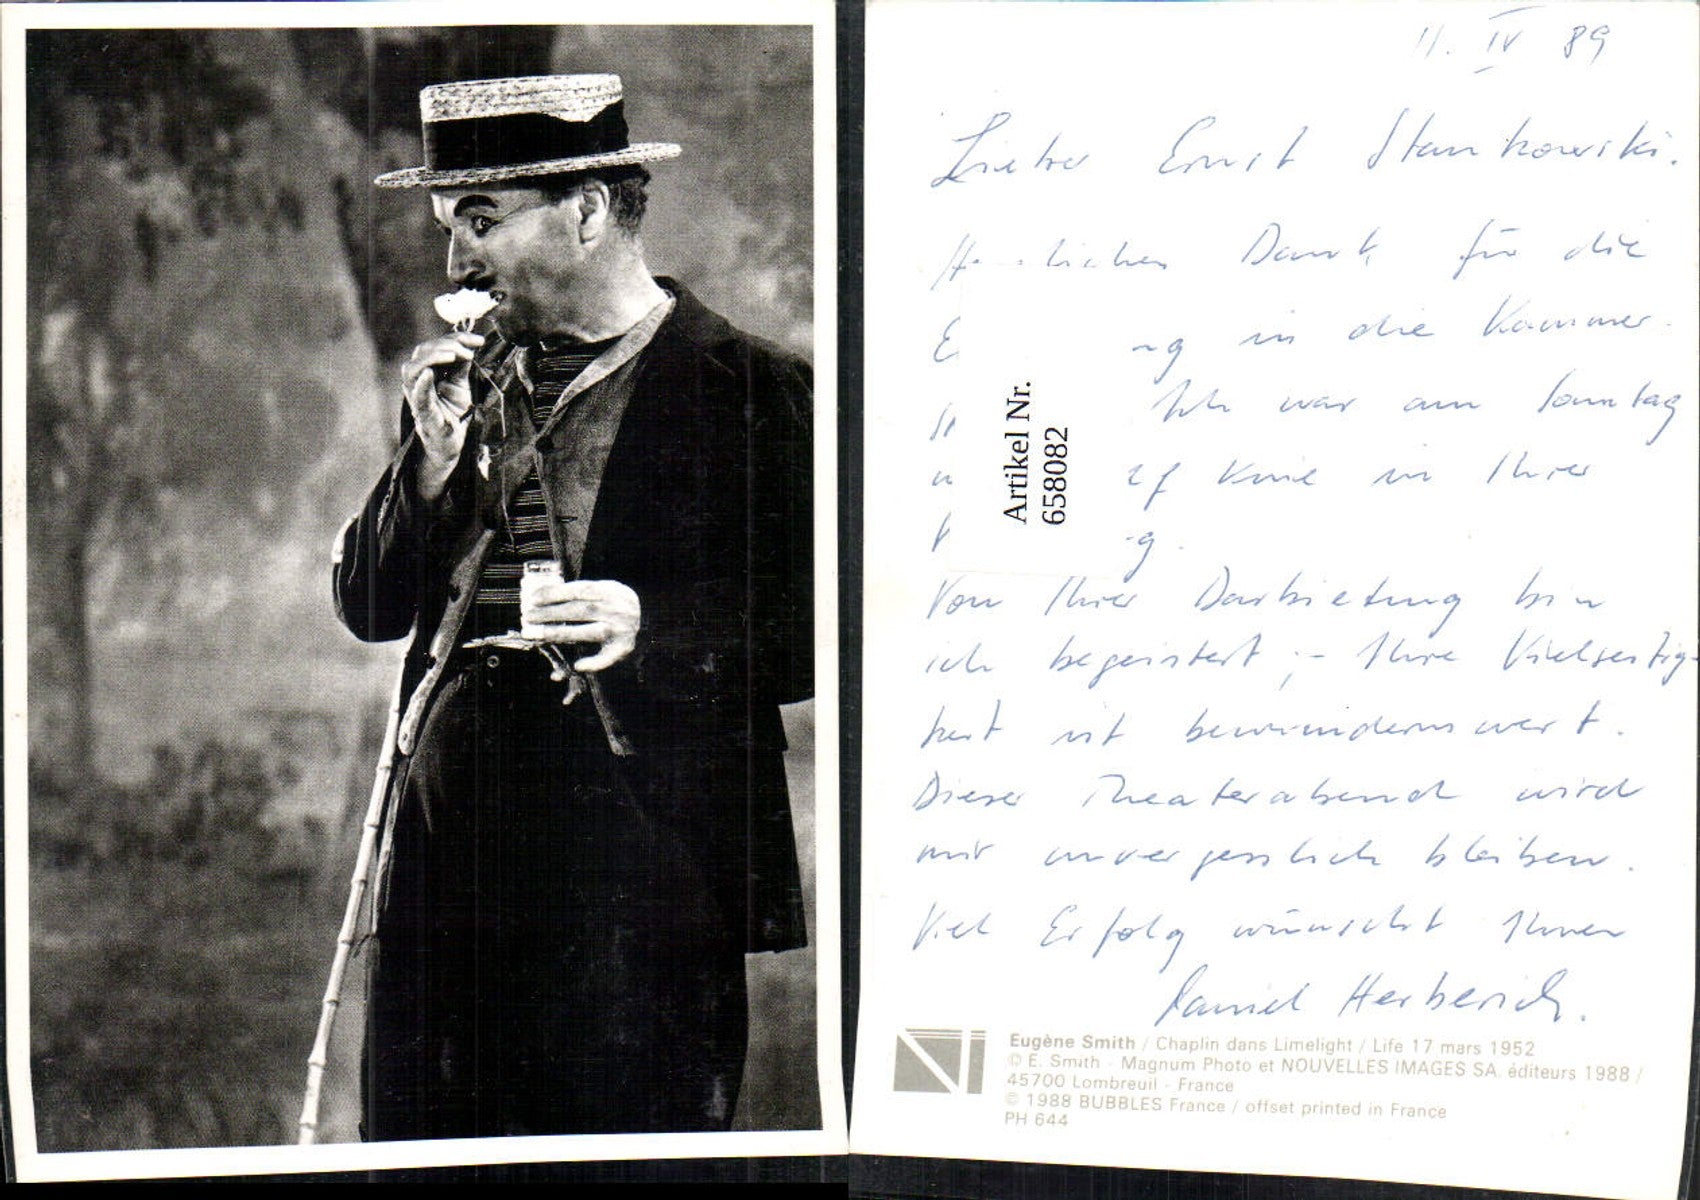 11. IV 89
Lieber Ernst Stankowski.
Herzlichen Dank für die
in die Kammer.
Ich war am Sonntag
in Ihrer
Von Ihrer Darbietung bin
ich begeistert ;- Ihre Vielseitig-
keit ist bewundernswert.
Dieser Theaterabend wird
mir unvergesslich bleiben.
Viel Erfolg wünscht Ihnen
Daniel Herberich.
Artikel Nr.
658082
Eugène Smith / Chaplin dans Limelight / Life 17 mars 1952
© E. Smith - Magnum Photo et NOUVELLES IMAGES SA. éditeurs 1988 /
45700 Lombreuil - France
© 1988 BUBBLES France / offset printed in France
PH 644